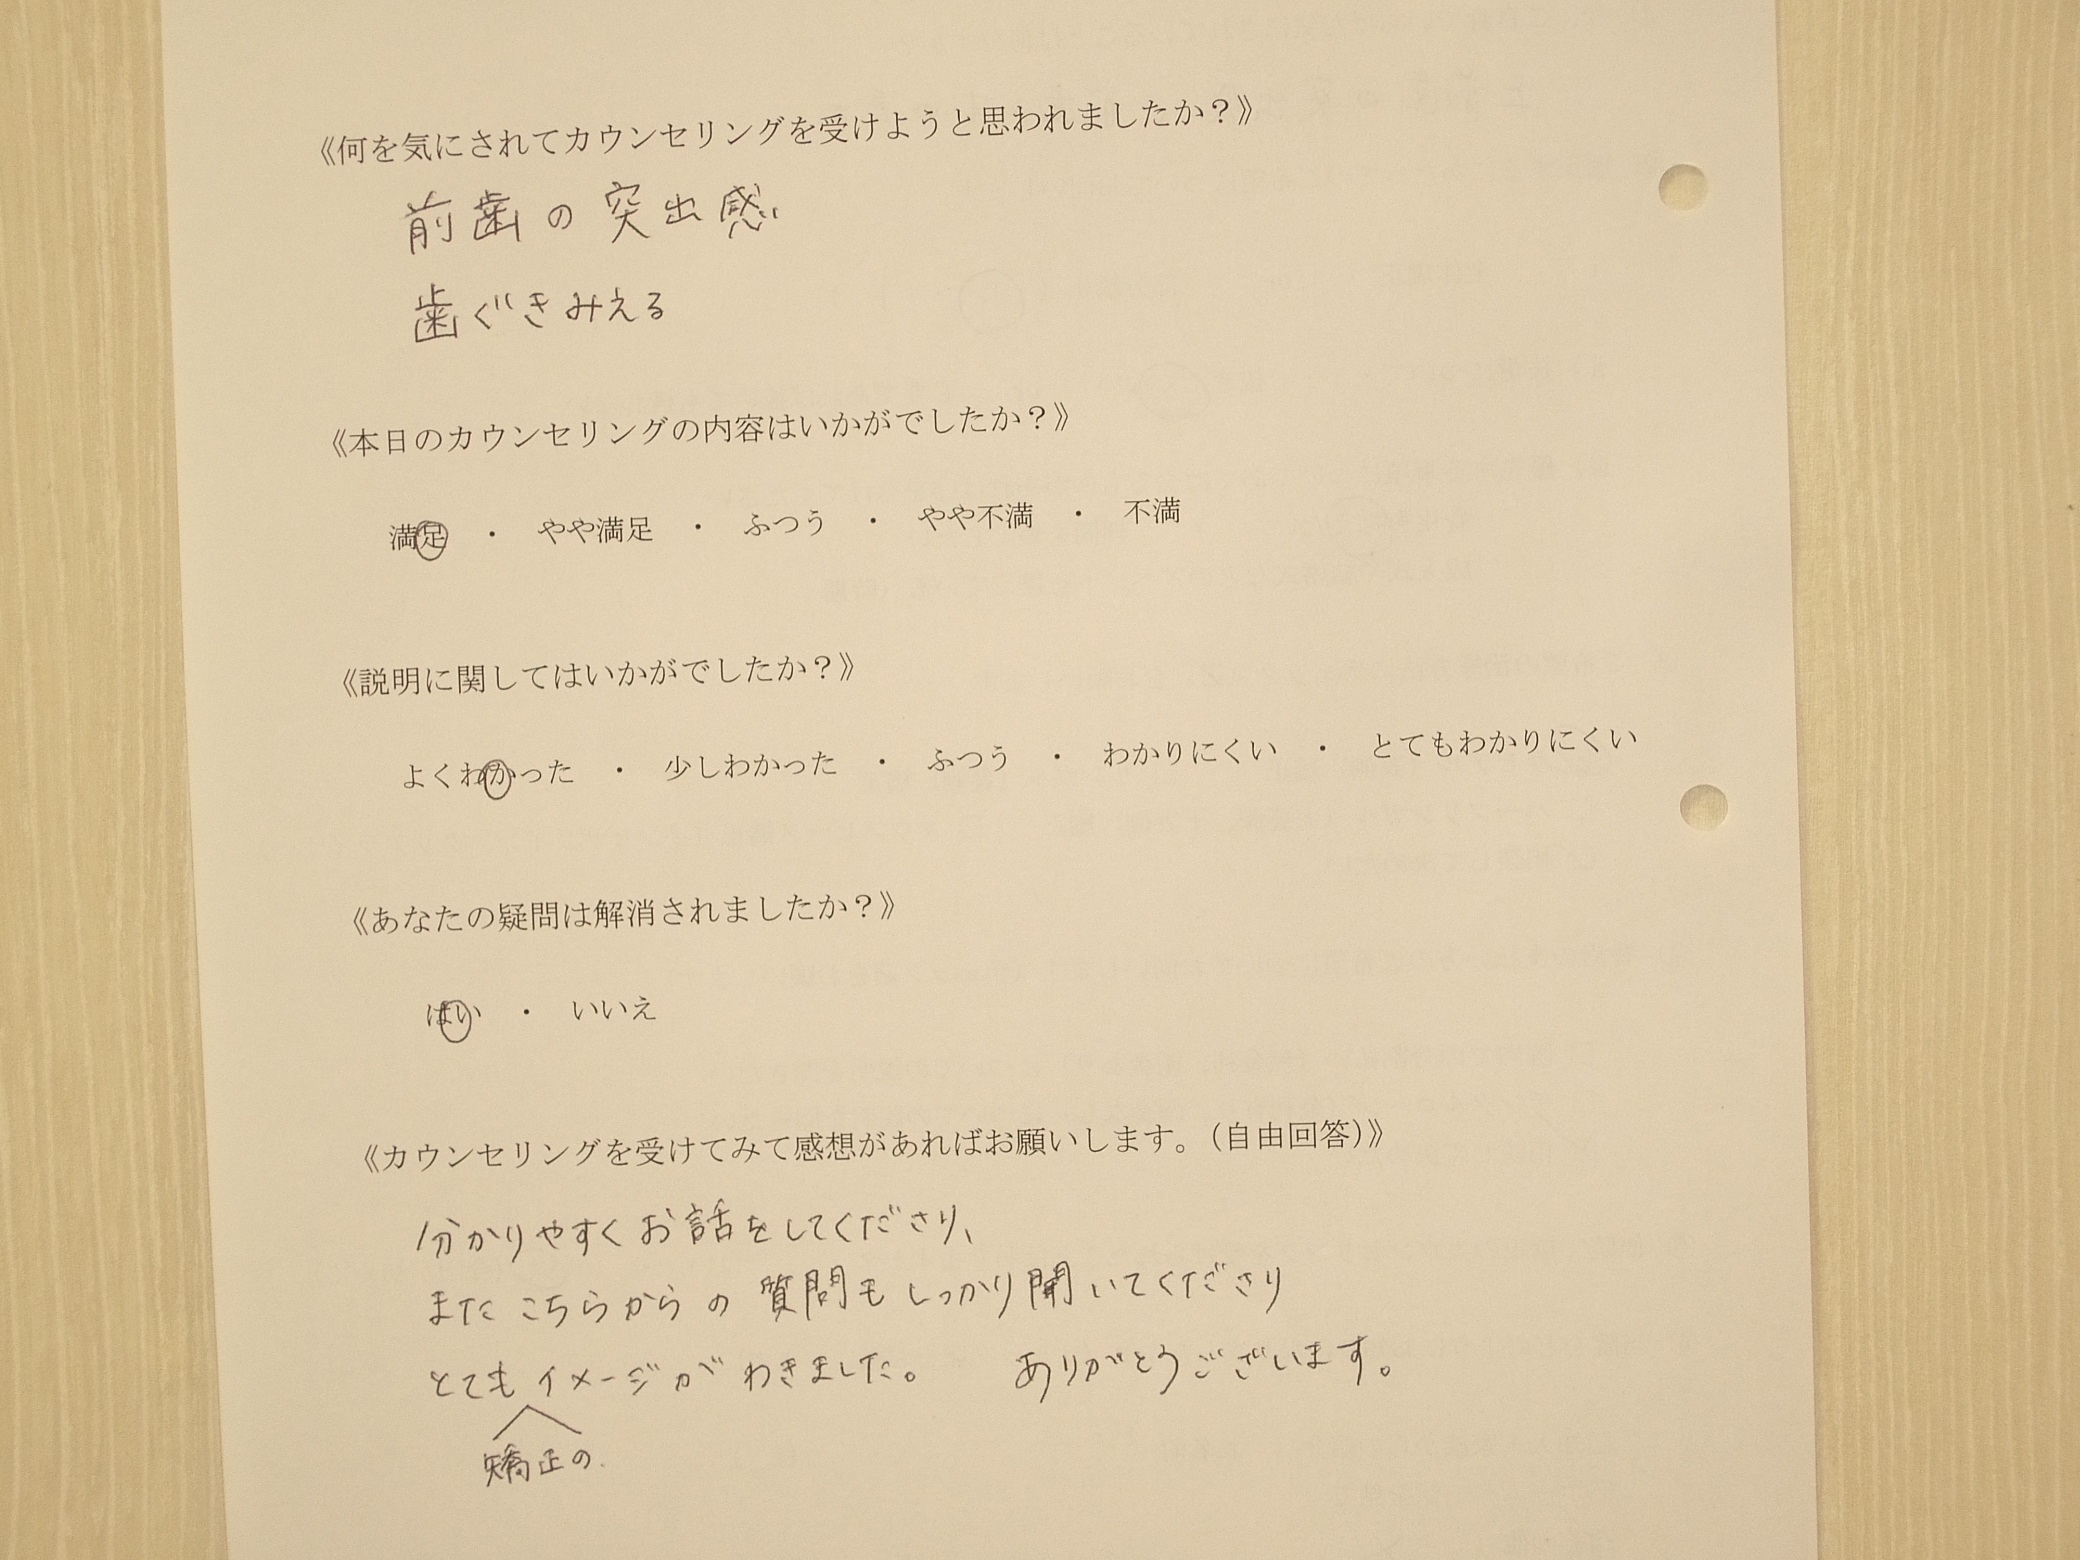 《何を気にされてカウンセリングを受けようと思われましたか？》
前歯の突出感
歯ぐきみえる
《本日のカウンセリングの内容はいかがでしたか？》
満足 ・ やや満足 ・ ふつう ・ やや不満 ・ 不満
《説明に関してはいかがでしたか？》
よくわかった ・ 少しわかった ・ ふつう ・ わかりにくい ・ とてもわかりにくい
《あなたの疑問は解消されましたか？》
はい ・ いいえ
《カウンセリングを受けてみて感想があればお願いします。（自由回答）》
分かりやすくお話をしてくださり、
またこちらからの質問もしっかり聞いてくださり
とてもイメージがわきました。 ありがとうございます。
矯正の